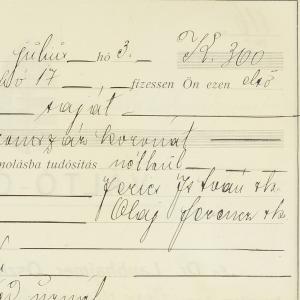 július hó 3. K. 300
17 fizessen Ön ezen első
saját
koronát
molásba tudósítás nélkül
Jerics István sk.
Olaj Ferencz sk.